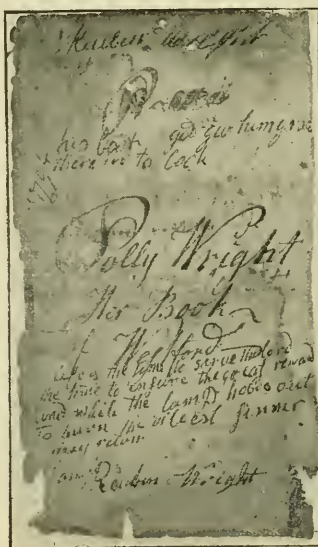 Reuben Wright
his book god giv him grac
therein to look
Polly Wright
Her Book
of Westford
Life is the time to serve the lord
the time to ensure the great reward
and while the lamp holds out
to burn the vilest sinner
may return
Reuben Wright